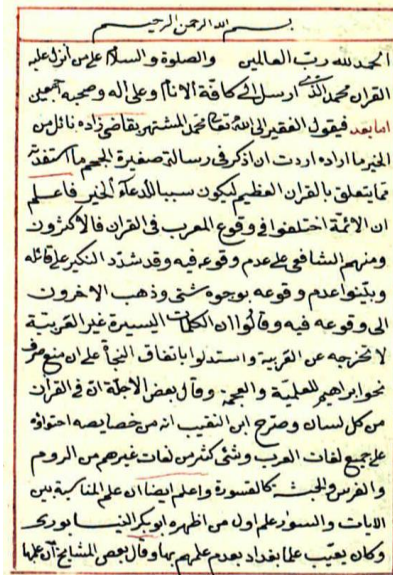 بسم الله الرحمن الرحيم
الحمد لله رب العالمين والصلوة والسلام على من أنزل عليه
القران محمد الذى ارسل الى كافة الانام وعلى اله وصحبه اجمعين
اما بعد فيقول الفقير الى الله تعا محمد المشتهر بقاضى زاده نائل من
الخير ما اراده اردت ان اذكر فى رسالة صغيرة الحجم ما استفدته
مما يتعلق بالقران العظيم ليكون سببا للدعاء الخير فاعلم
ان الائمة اختلفوا فى وقوع المعرب فى القران فالاكثرون
ومنهم الشافعى على عدم وقوعه فيه وقد شدد النكير على قائله
وبينوا عدم وقوعه بوجوه شتى وذهب الاخرون
الى وقوعه فيه وقالوا ان الكلمات اليسيرة غير العربية
لا تخرجه عن العربية واستدلوا باتفاق النحاة على ان منع صرف
نحو ابراهيم للعلمية والعجمة وقال بعض الاجلة ان فى القران
من كل لسان وصرح ابن النقيب انه من خصايصه احتواؤه
على جميع لغات العرب وشئ كثر من لغات غيرهم من الروم
والفرس والحبشه كالقسورة واعلم ايضا ان علم المناسبة بين
الايات والسور علم اول من اظهره ابو بكر النيسابورى
وكان يعيب علما بغداد بعدم علمهم بها وقال بعض المشايخ ان علمها